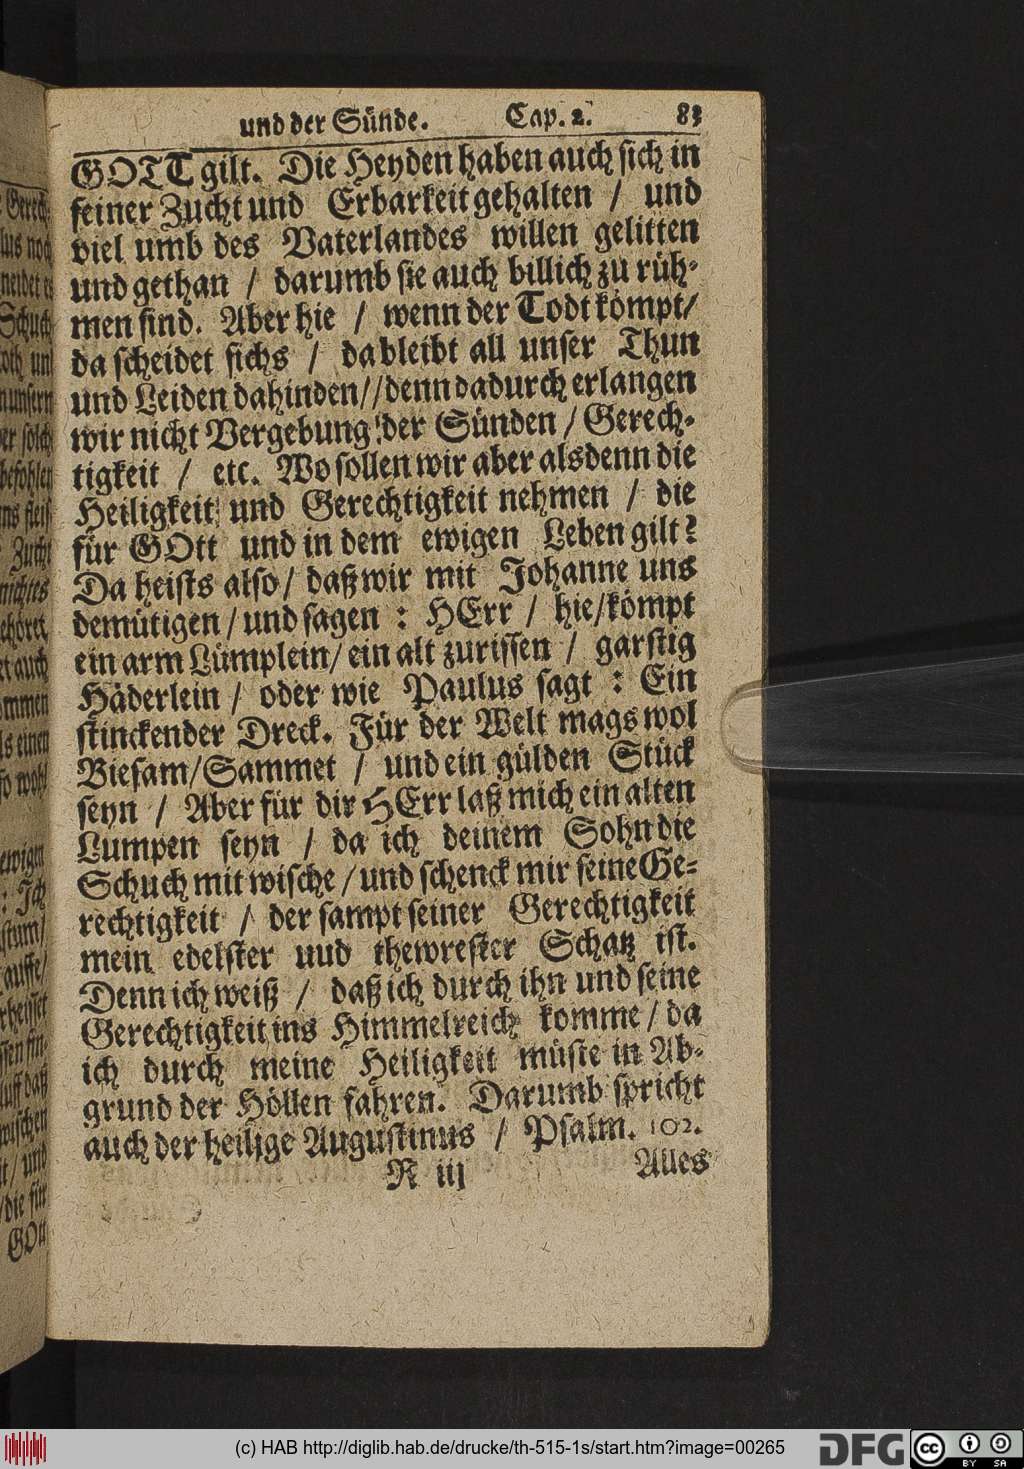 und der Sünde. Cap. 2. 83
GOTT gilt. Die Heyden haben auch sich in
feiner Zucht und Erbarkeit gehalten / und
viel umb des Vaterlandes willen gelitten
und gethan / darumb sie auch billich zu rüh-
men sind. Aber hie / wenn der Todt kömpt/
da scheidet sichs / da bleibt all unser Thun
und Leiden dahinden// denn dadurch erlangen
wir nicht Vergebung der Sünden / Gerech-
tigkeit / etc. Wo sollen wir aber alsdenn die
Heiligkeit und Gerechtigkeit nehmen / die
für GOtt und in dem ewigen Leben gilt?
Da heists also / daß wir mit Johanne uns
demütigen / und sagen : HErr / hie/kömpt
ein arm Lümplein/ ein alt zurissen / garstig
Häderlein / oder wie Paulus sagt : Ein
stinckender Dreck. Für der Welt mags wol
Biesam/Sammet / und ein gülden Stück
seyn / Aber für dir HErr laß mich ein alten
Lumpen seyn / da ich deinem Sohn die
Schuch mit wische / und schenck mir seine Ge-
rechtigkeit / der sampt seiner Gerechtigkeit
mein edelster uud thewrester Schatz ist.
Denn ich weiß / daß ich durch ihn und seine
Gerechtigkeit ins Himmelreich komme / da
ich durch meine Heiligkeit müste in Ab-
grund der Höllen fahren. Darumb spricht
auch der heilige Augustinus / Psalm. 102.
R iij Alles
(c) HAB http://diglib.hab.de/drucke/th-515-1s/start.htm?image=00265
DFG
cc BY SA